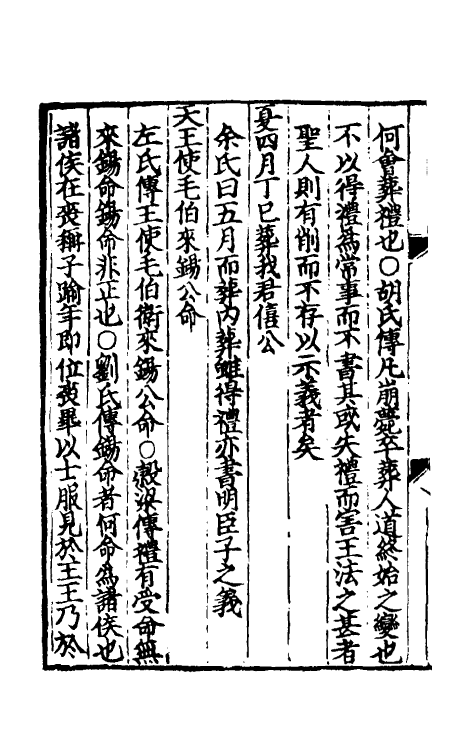 何會葬禮也○胡氏傳凡崩薨卒葬人道終始之變也
不以得禮為常事而不書其或失禮而害王法之甚者
聖人則有削而不存以示義者矣
夏四月丁巳葬我君僖公
余氏曰五月而葬内葬雖得禮亦書明臣子之義
天王使毛伯來錫公命
左氏傳王使毛伯衛來錫公命○穀梁傳禮有受命無
來錫命錫命非正也○劉氏傳錫命者何命為諸侯也
諸侯在喪稱子踰年即位喪畢以士服見於王王乃於